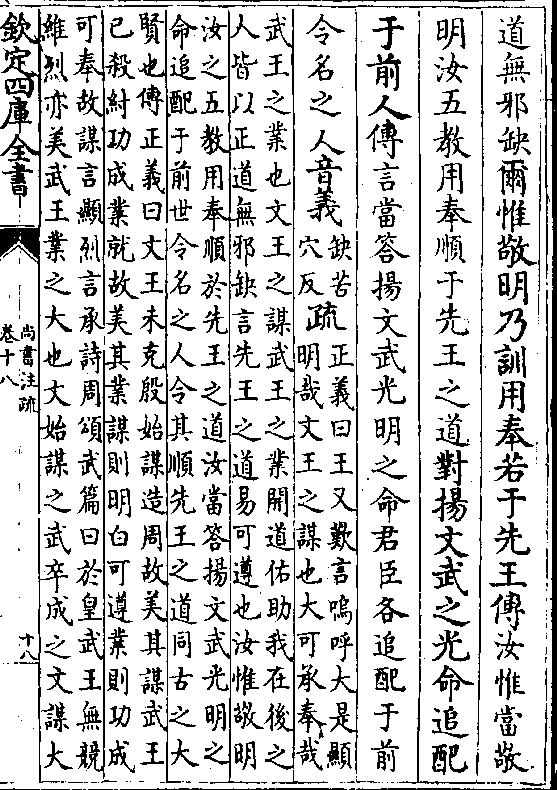 道無邪缺爾惟敬明乃訓用奉若于先王傳汝惟當敬
明汝五教用奉順于先王之道對揚文武之光命追配
于前人傳言當答揚文武光明之命君臣各追配于前
令名之人音義缺苦穴反疏正義曰王又歎言嗚呼大是顯
明哉文王之謀也大可承奉哉
武王之業也文王之謀武王之業開道佑助我在後之
人皆以正道無邪缺言先王之道易可遵也汝惟敬明
汝之五教用奉順於先王之道汝當答揚文武光明之
命追配于前世令名之人令其順先王之道同古之大
賢也傳正義曰文王未克殷始謀造周故美其謀武王
已殺紂功成業就故美其業謀則明白可遵業則功成
可奉故謀言顯烈言承詩周頌武篇曰於皇武王無競
維烈亦美武王業之大也文始謀之武卒成之文謀大
欽定四庫全書
尚書注疏
卷十八
十八